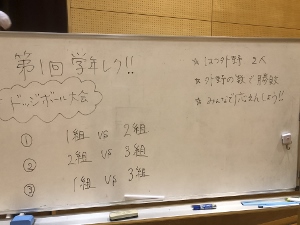 第1回 学年レク!!
ドッジボール大会
① 1組 vs 2組
② 2組 vs 3組
③ 1組 vs 3組
☆はつ外野 2人
☆外野の数で勝敗
☆みんなで応えんしよう!!